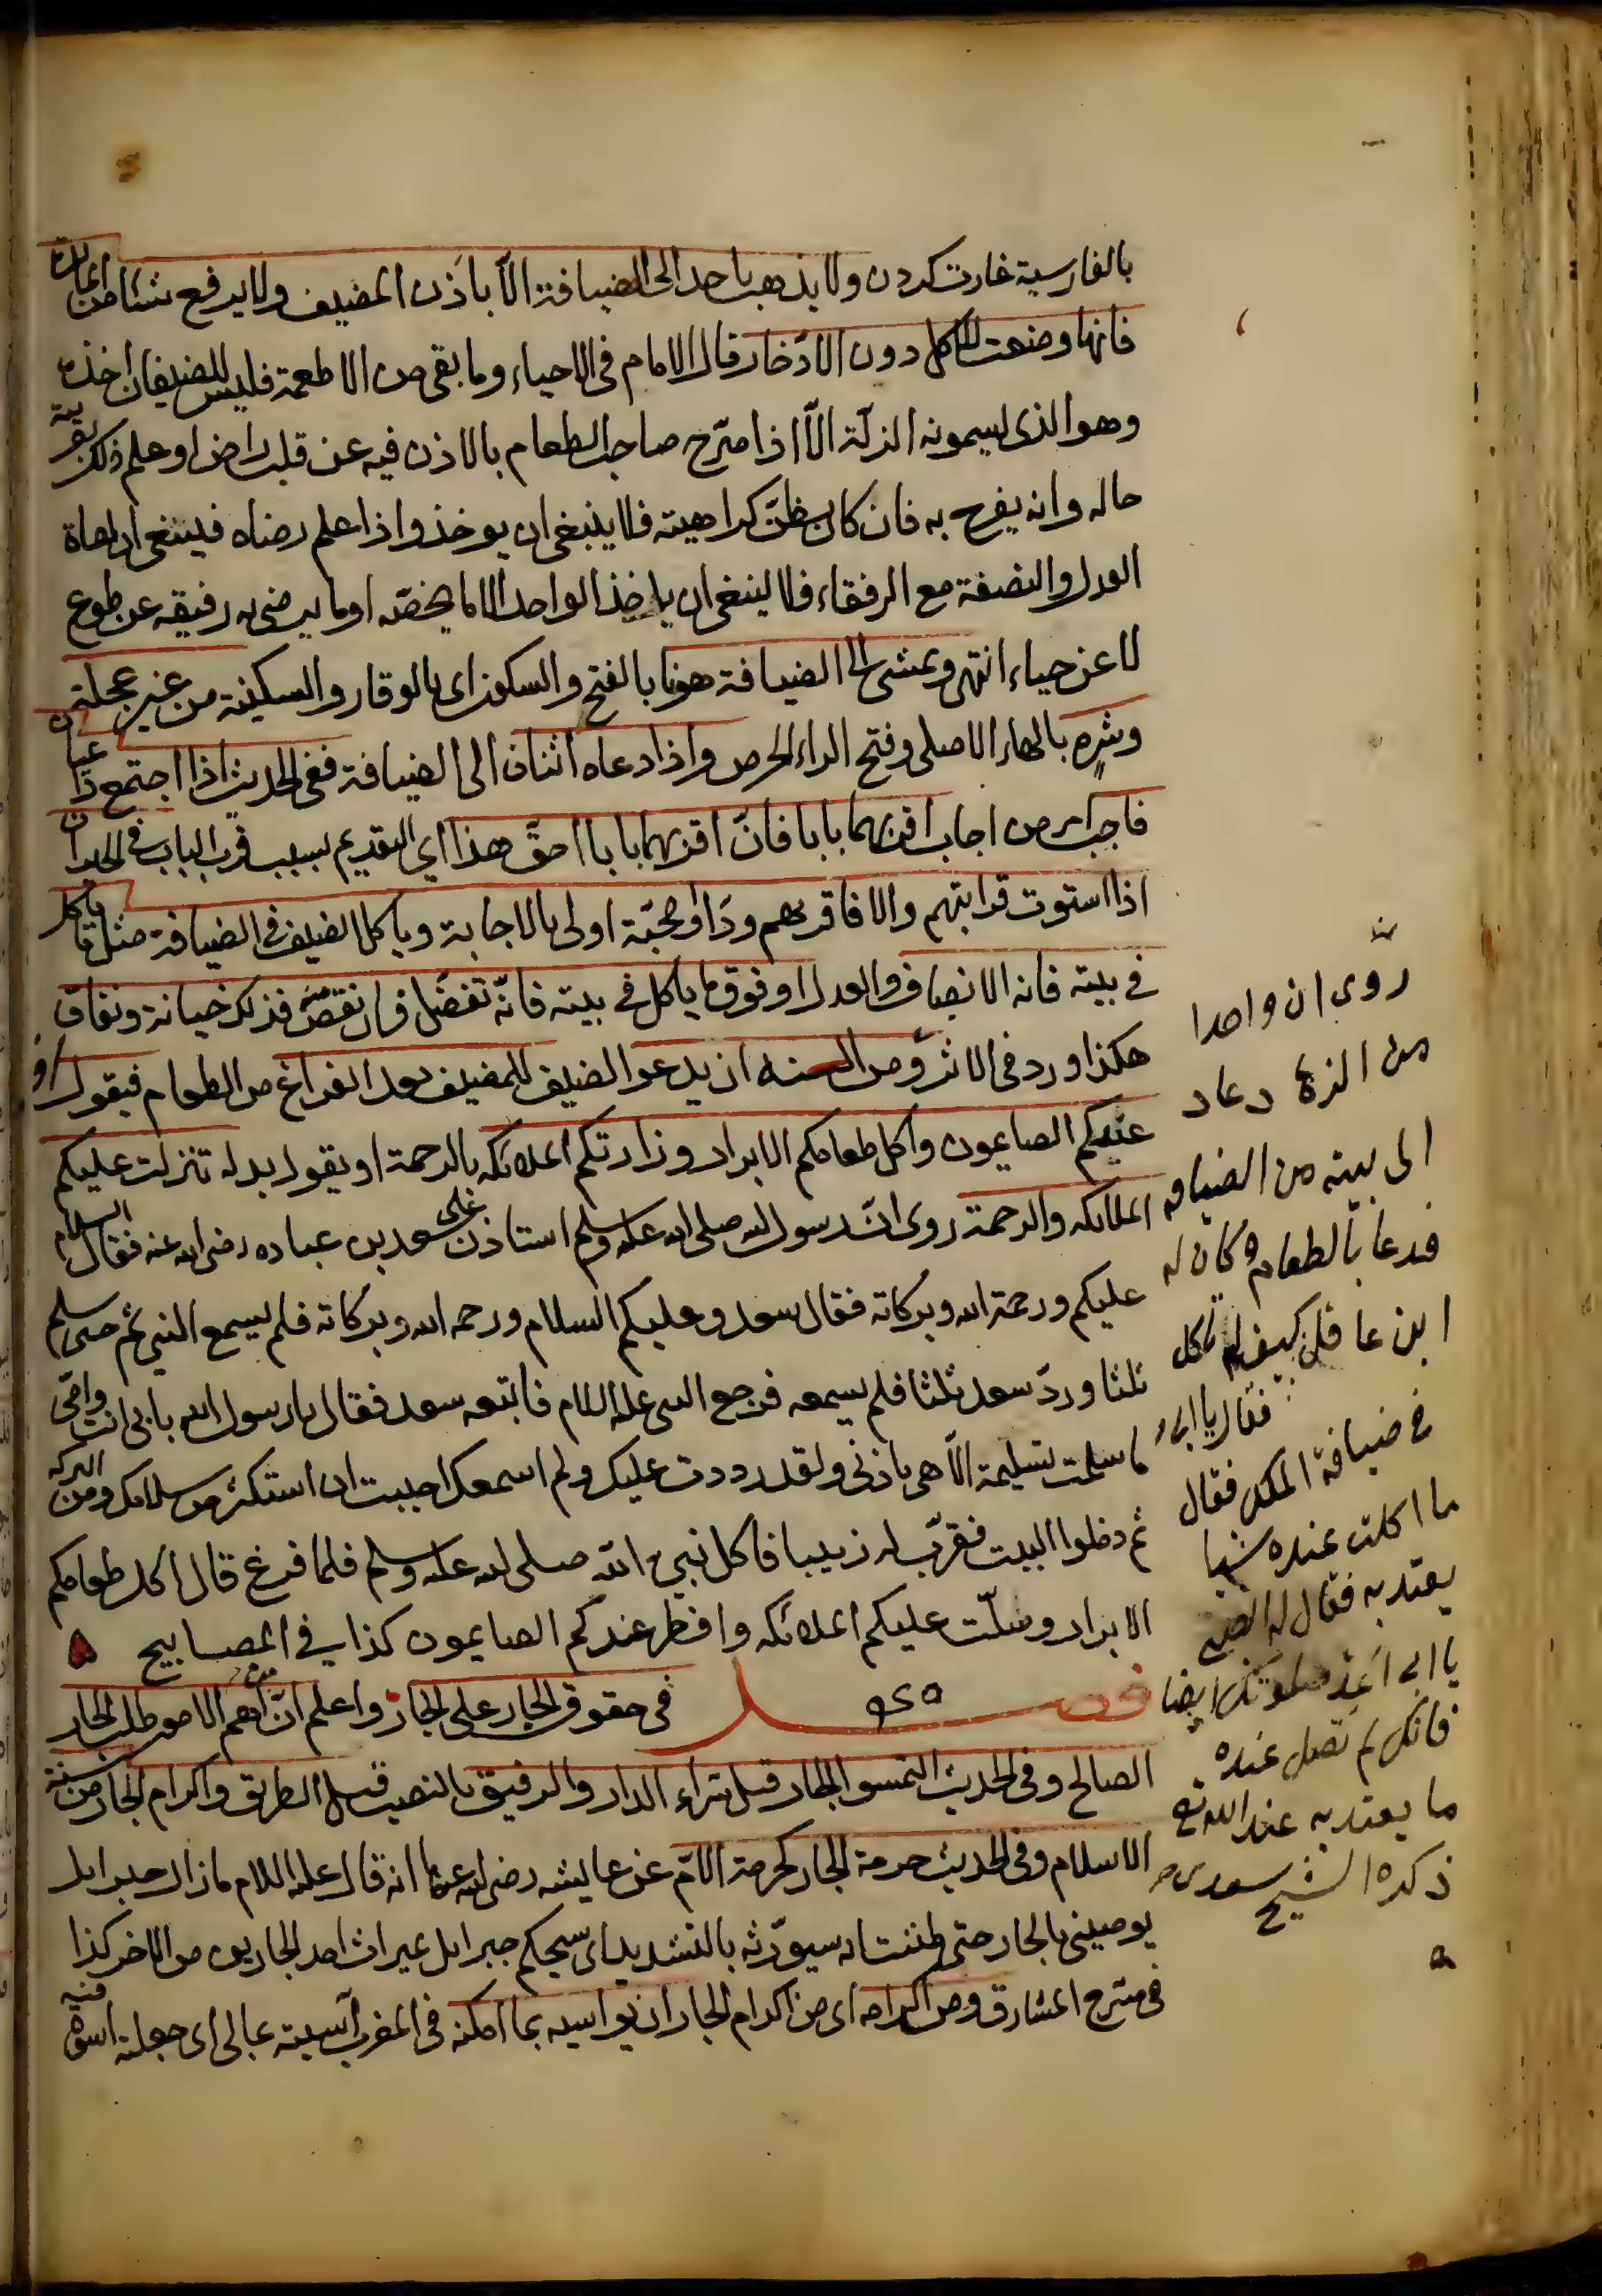 بالفارسية غارت كردن ولا يذهب باحد الى الضيافة الا باذن المضيف ولا يرفع شئا من المائدة
فانها وضعت للاكل دون الادّخار قال الامام فى الاحياء وما بقى من الاطعمة فليس للضيفان اخذه
وهو الذى يسمونه الزلّة الاّ اذا صرّح صاحب الطعام بالاذن فيه عن قلب راض او علم ذلك بقرينة
حاله وانه يفرح به فان كان يظنّ كراهيته فلا ينبغى ان يوخذ واذا علم رضاه فينبغى مراعاة
العدل والنصفة مع الرفقاء فلا ينبغى ان ياخذ الواحد الا ما يخصّه او ما يرضى به رفيقه عن طوع
لا عن حياء انتهى ويمشى الى الضيافة هونا بالفتح والسكون اى بالوقار والسكينة من غير عجلة
وشره بالهاء الاصلى وفتح الراء الحرص واذا دعاه اثنان الى الضيافة ففى الحديث اذا اجتمع داعيان
فاجب امر من اجاب اقربهما بابا فانّ اقربهما بابا احقّ هذا اى التقديم بسبب قرب الباب فى الجيران
اذا استوت قرابتهم والا فاقربهم ودّا ومحبّة اولى بالاجابة وياكل الضيف فى الضيافة مثل ما ياكل
فى بيته فانه الانصاف والعدل او فوق ما ياكل فى بيته فانّه تفضّل فان نقص منه فذلك خيانة ونفاق
هكذا ورد فى الاثر ومن السنه ان يدعو الضيف للمضيف بعد الفراغ من الطعام فيقول افطر
عندكم الصايمون واكل طعامكم الابرار وزارتكم الملائكه بالرحمة او يقول بدله تنزلت عليكم
الملائكه والرحمة روى انّ رسول الله صلى الله عليه وسلم استاذن على سعد بن عباده رضى الله عنه فقال السلام
عليكم ورحمة الله وبركاته فقال سعد وعليكم السلام ورحمه الله وبركاته فلم يسمع النبى عم حتى سلم
ثلثا وردّ سعد ثلثا فلم يسمعه فرجع النبى عليه السلام فاتبعه سعد فقال يا رسول الله بابى انت وامّى
ما سلمت تسليمة الاّ هى باذنى ولقد رددت عليك ولم اسمعك احببت ان استكثر من سلامك ومن البركه
ثم دخلوا البيت فقرّب له زبيبا فاكل نبى الله صلى الله عليه وسلم فلما فرغ قال اكل طعامكم
الابرار وصلّت عليكم الملائكه وافطر عندكم الصايمون كذا فى المصابيح
فصل فى حقوق الجار على الجار واعلم انّ من اهم الامور طلب الجار
الصالح وفى الحديث التمسوا الجار قبل شراء الدار والرفيق بالنصب قبل الطريق واكرام الجار من سنة
الاسلام وفى الحديث حرمة الجار كحرمة الامّ عن عايشه رضى الله عنها انه قال عليه السلام ما زال جبرايل
يوصينى بالجار حتى ظننت انه سيورّثه بالتشديد اى سيحكم جبرايل بميراث احد الجارين من الاخر كذا
فى شرح المشارق ومن اكرامه اى من اكرام الجار ان يواسيه بما امكنه فى المغرب آسيته بمالى اى جعلته اسوة فيه
روى ان واحدا
من الزهاد عاد
الى بيته من الضيافه
فدعا بالطعام وكان له
ابن عاقل كيف لم تاكل
فقال يا ابى
فى ضيافة الملك فقال
ما اكلت عنده شيا
يعتد به فقال له الصبى
يا ابى اعد صلوتك ايضا
فانك لم تصل عنده
ما يعتد به عند الله تع
ذكره الشيخ سعدى